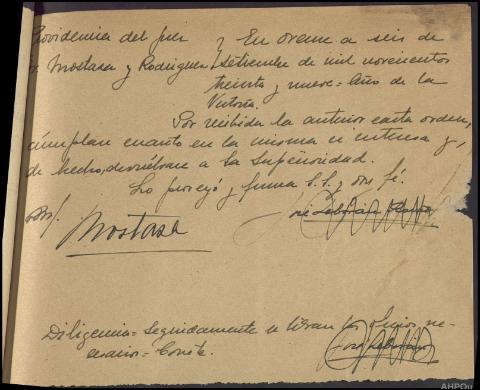 Providencia del Juez } En Orense a seis de
Sr. Mostaza y Rodriguez } Setiembre de mil novecientos
treinta y nueve = Año de la
Victoria.
Por recibida la anterior carta orden,
cúmplase cuanto en la misma se interesa y,
de hecho, devuélvase a la Superioridad.
Lo proveyó y firma S.S., doy fé.
Mostaza
Diligencia = Seguidamente se libran los oficios ne-
cesarios = Conste.
AHPOu